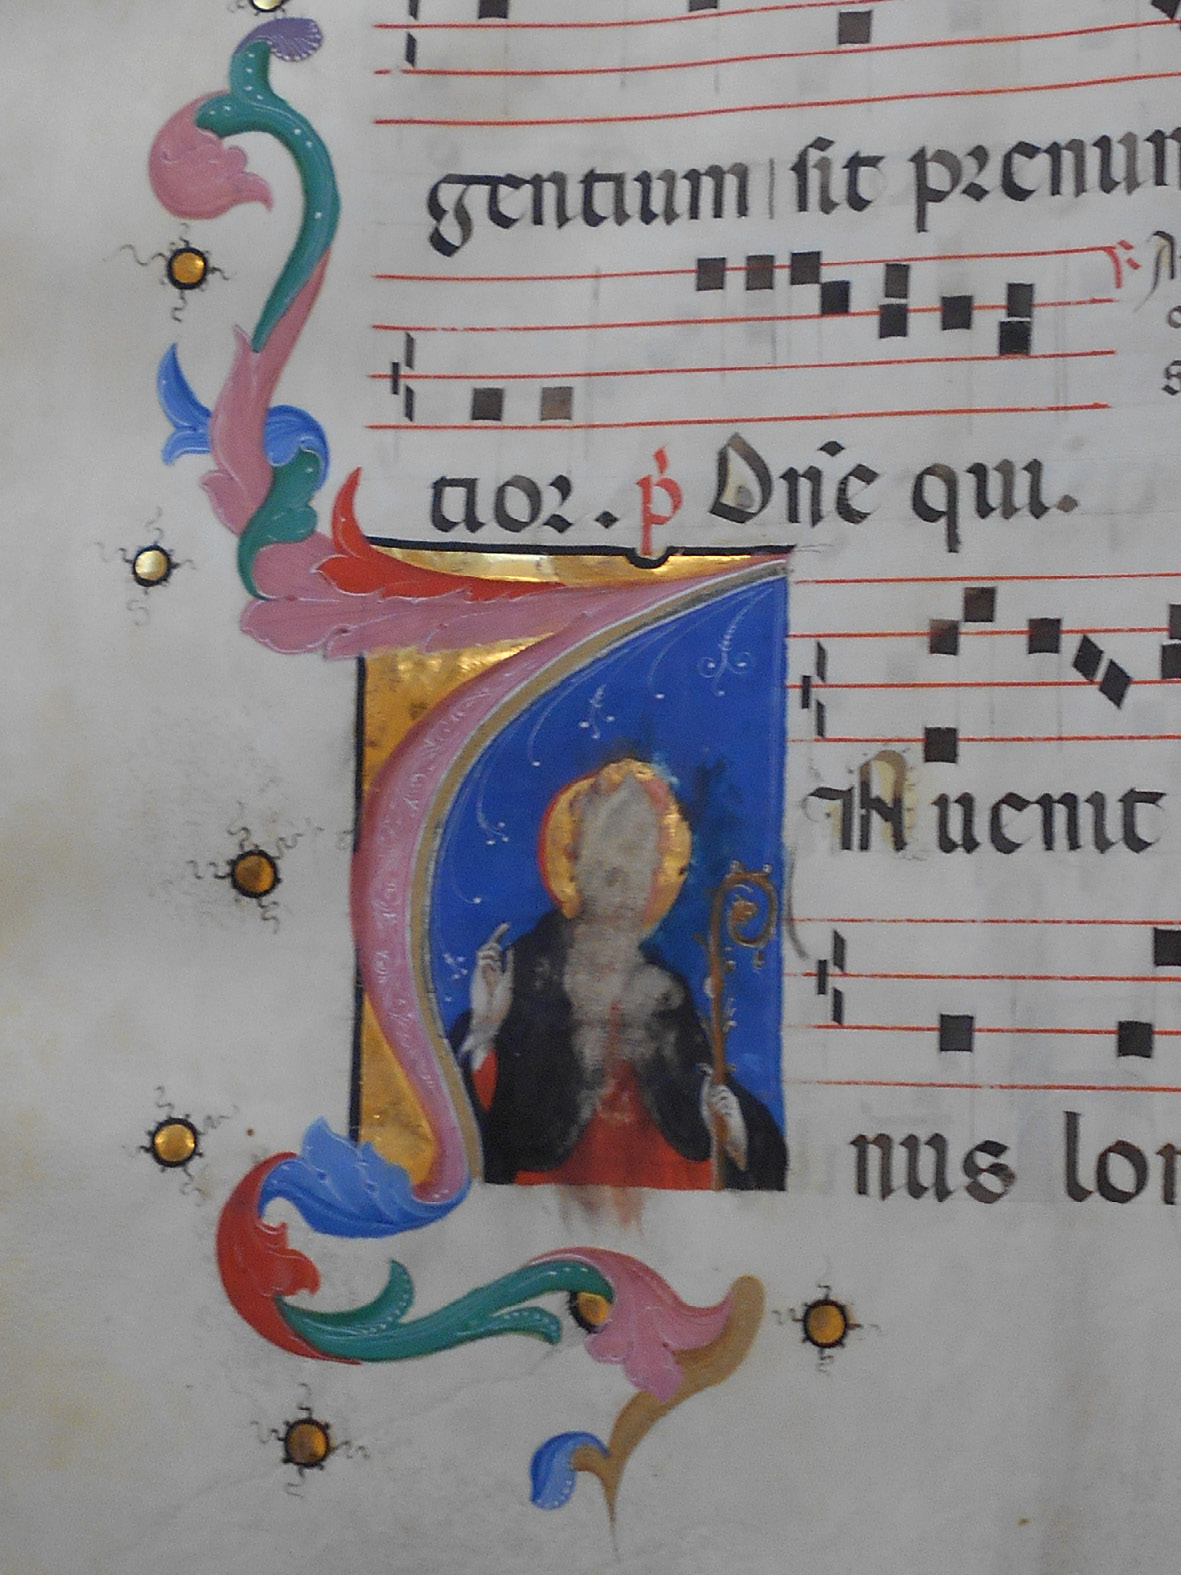 gentium sit prenun
tior. p̄ Dn̄e qui.
IAuenit
nus lon